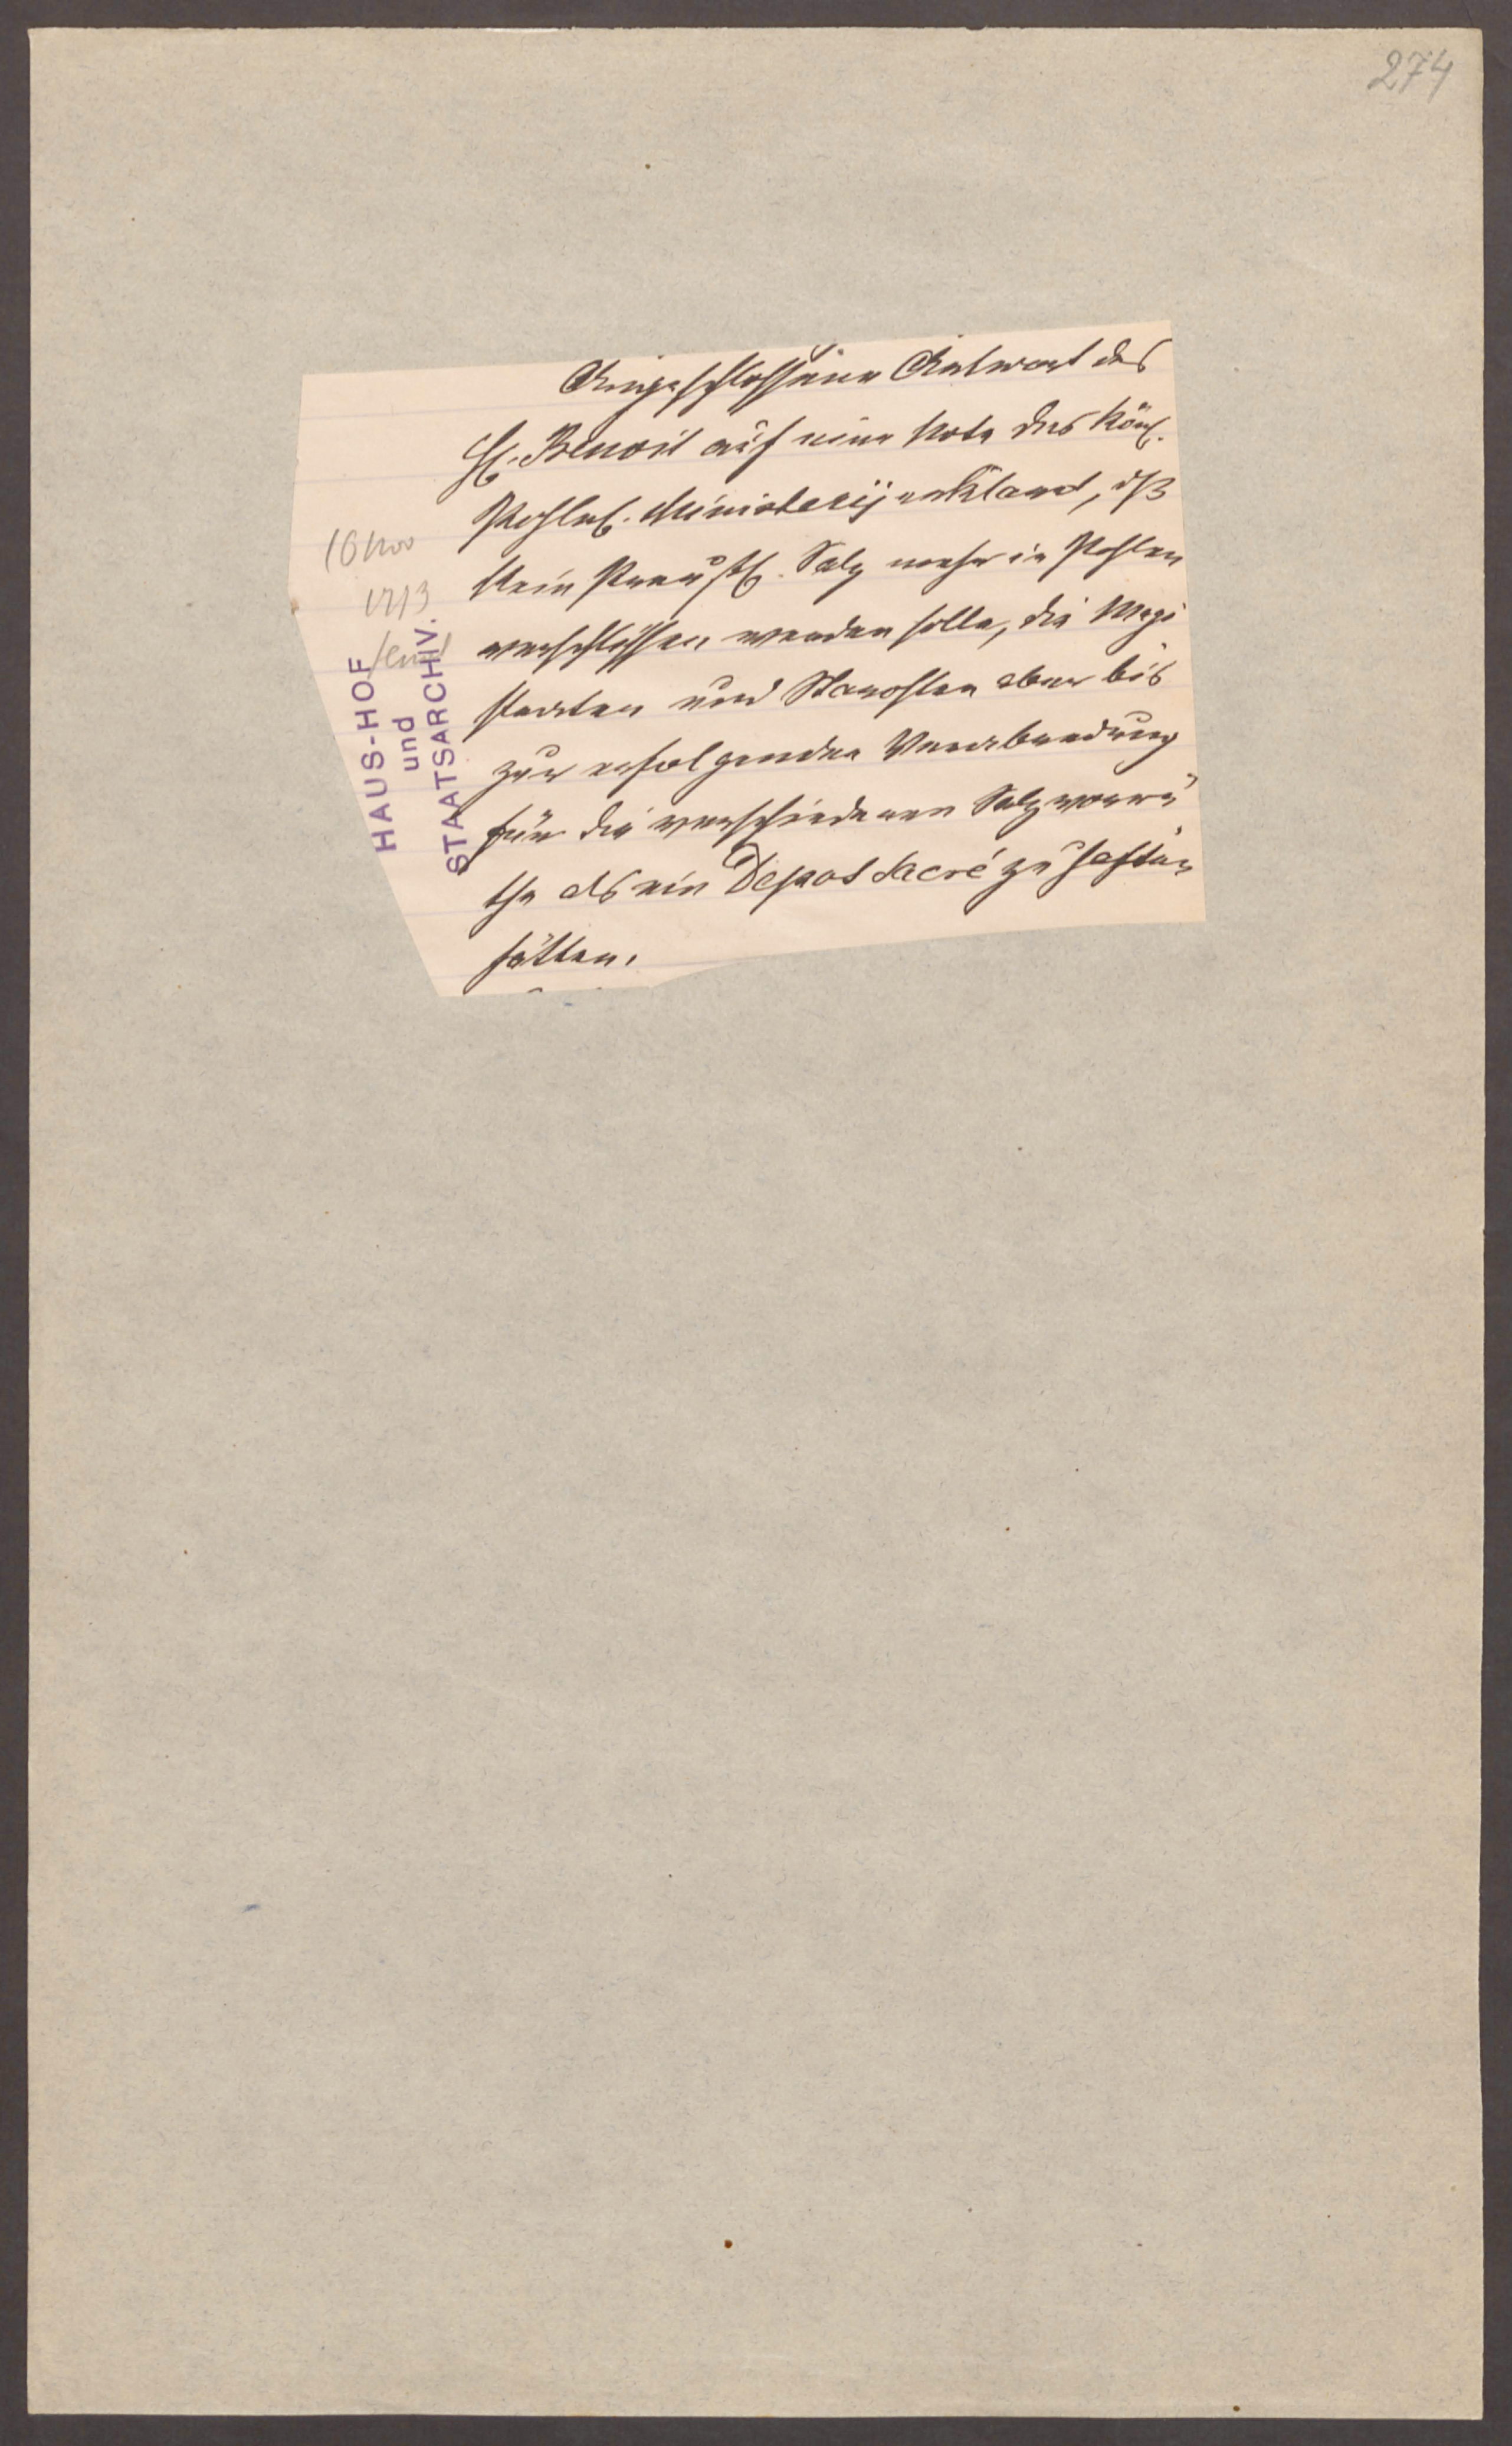 274
Angeschlossene Antwort des
H. Benoit auf eine Nota des Kön.
Pohln. Ministerij erklärt, dß
kein Preuß. Salz mehr in Pohlen
verschlissen werden solle, die Magi
straten und Starosten aber bis
zur erfolgenden Verabredung
für die verschiedenen Salzvorrä
the als ein Depot sacré zu haften
hätten.
16 Nov
HAUS-HOF
und
STAATSARCHIV.